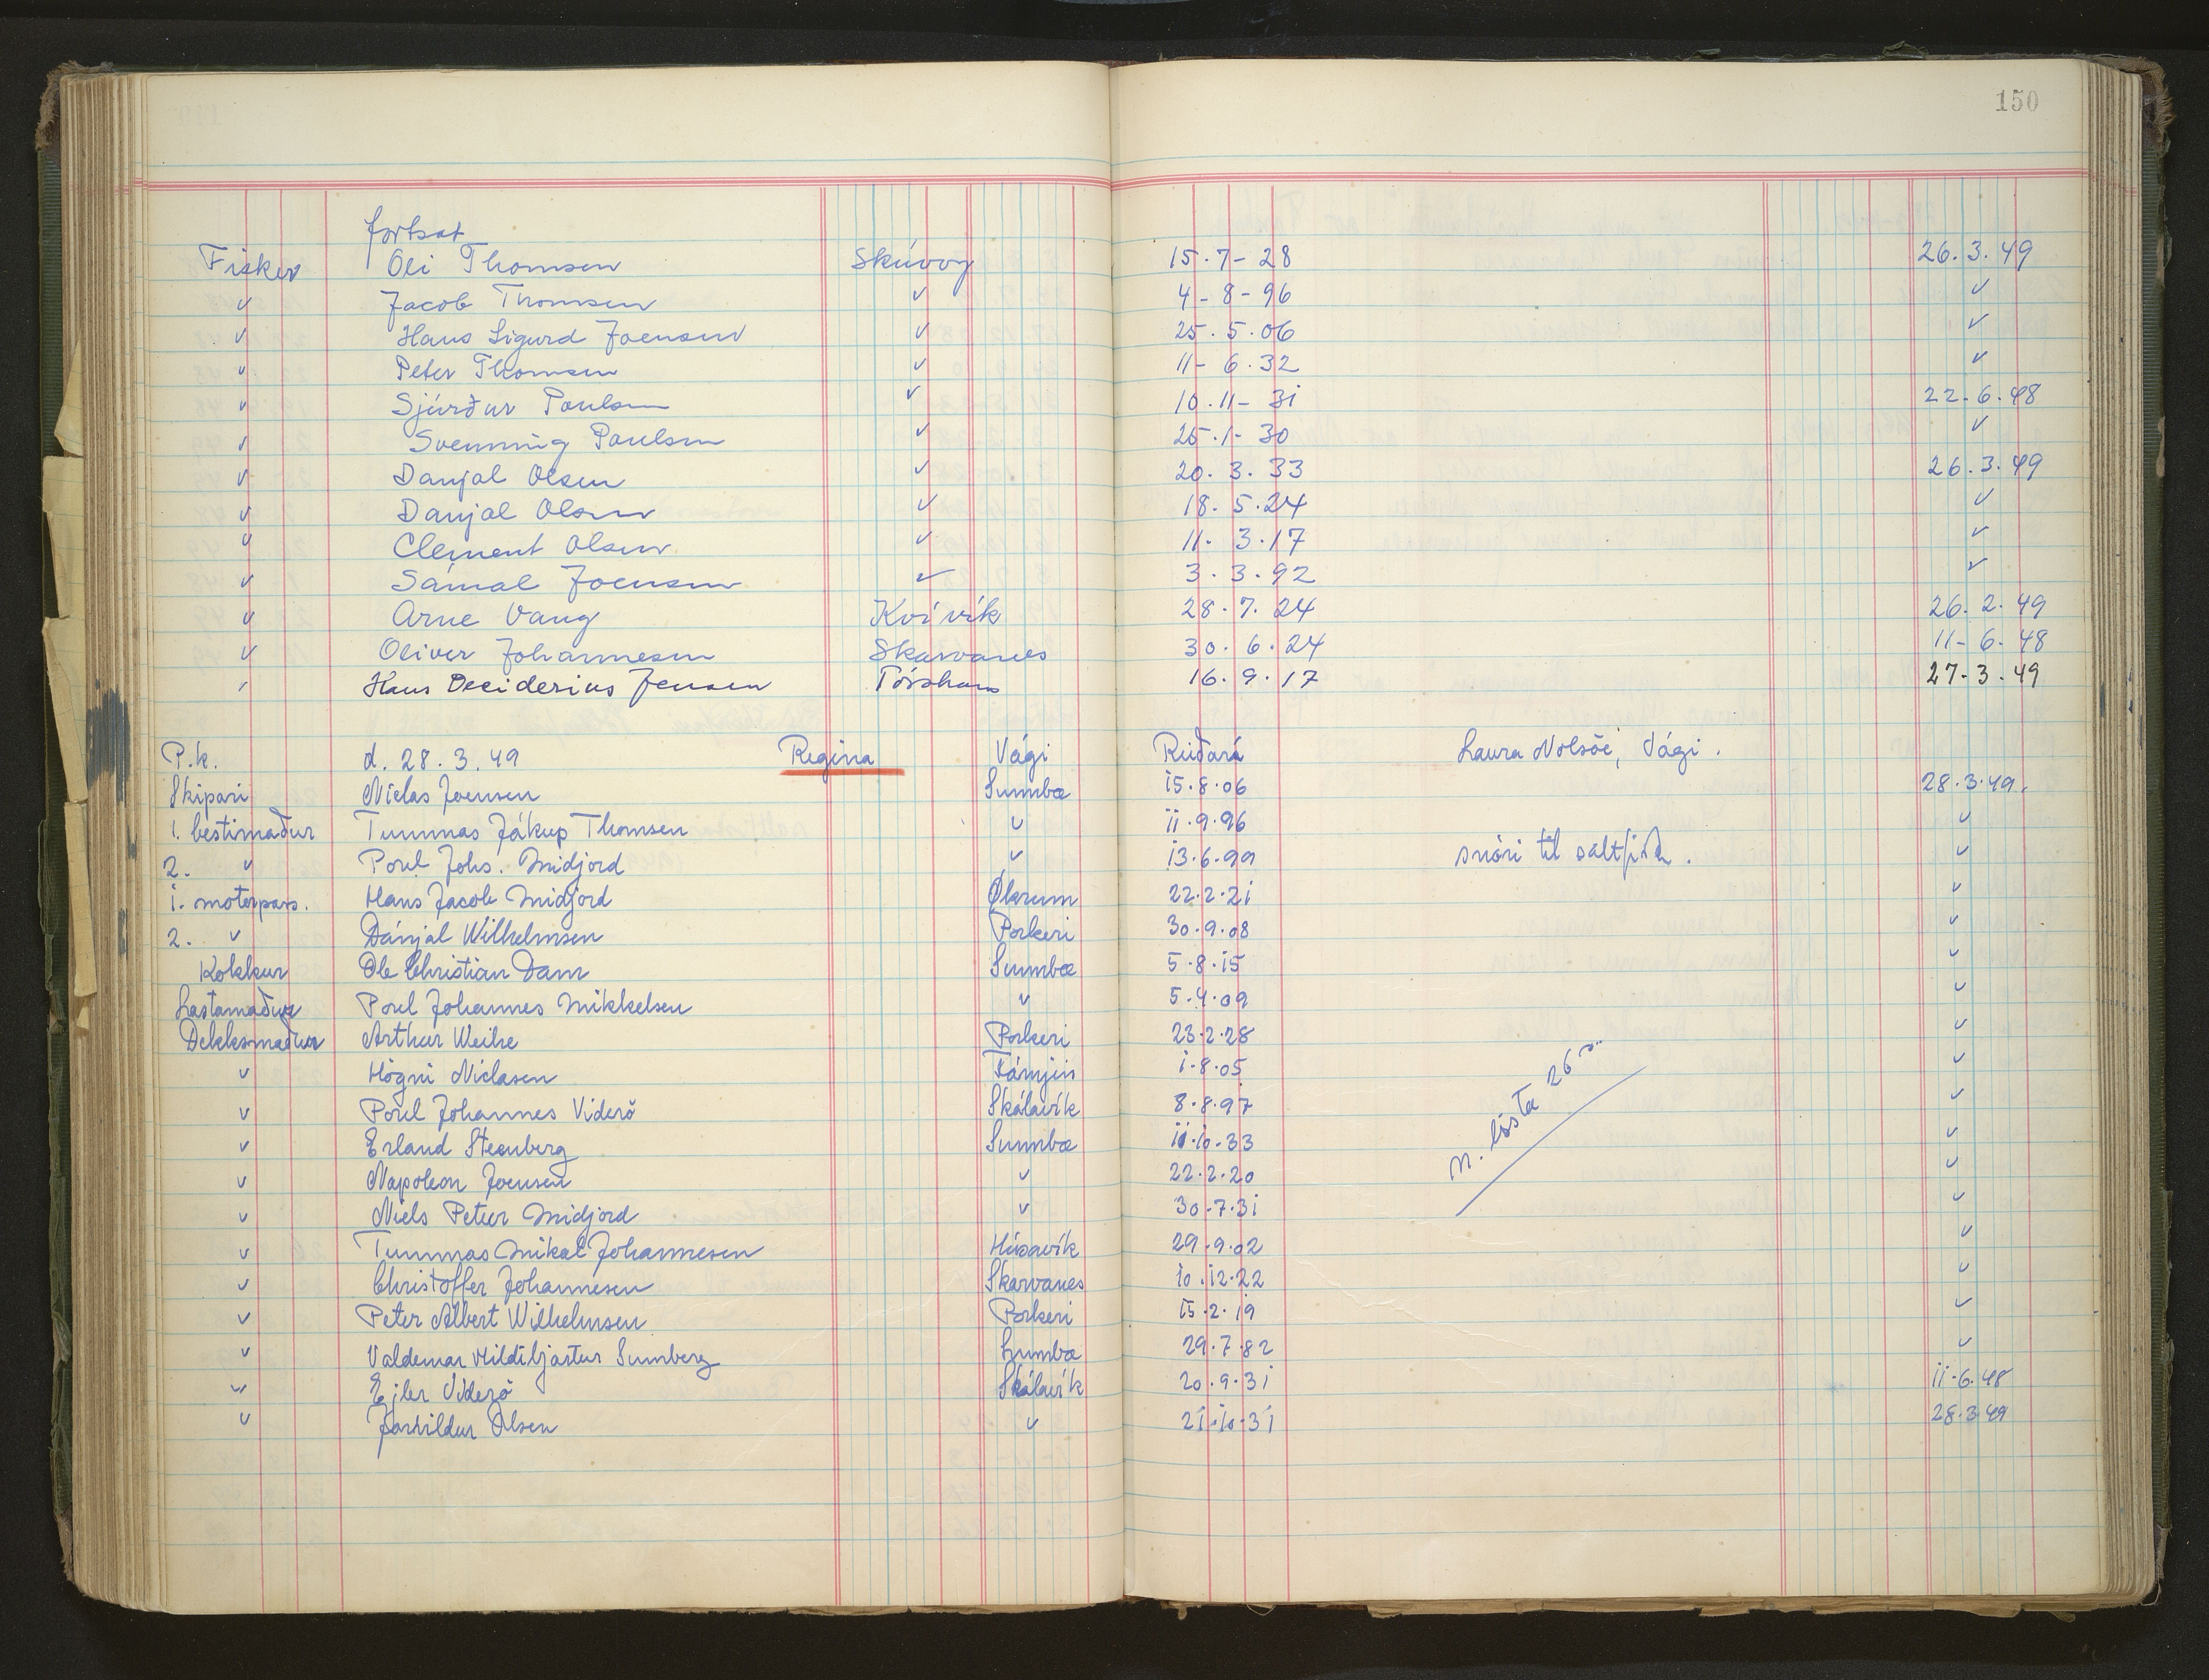 150
fortsat
Fisker Oli Thomsen Skúvoy 15.7-28 26.3.49
〃 Jacob Thomsen 〃 4-8-96 〃
〃 Hans Sigurd Joensen 〃 25.5.06 〃
〃 Peter Thomsen 〃 11-6.32 〃
〃 Sjúrður Poulsen 〃 10.11-31 22.6.48
〃 Svenning Poulsen 〃 25.1-30 〃
〃 Danjal Olsen 〃 20.3.33 26.3.49
〃 Danjal Olsen 〃 18.5.24 〃
〃 Clement Olsen 〃 11.3.17 〃
〃 Sámal Joensen 〃 3.3.92 〃
〃 Arne Vang Kvívík 28.7.24 26.2.49
〃 Oliver Johannesen Skarvanes 30.6.24 11-6.48
〃 Hans Deciderius Jensen Tórshavn 16.9.17 27-3.49
P.k. d. 28.3.49 Regina Vági Laura Nolsöe, Vági.
Skipari Niclas Joensen Sumbæ 15.8.06 28.3.49.
1. bestimaður Tummas Jákup Thomsen 〃 11.9.96 〃
2. 〃 Poul Johs. Midjord 〃 13.6.99 〃
snöri til saltfisk.
1. motorpass. Hans Jacob Midjord Øbrum 22.2.21 〃
2. 〃 Dánjal Wilhelmsen Porkeri 30.9.08 〃
Kokkur Ole Christian Dam Sumbæ 5.8.15 〃
Lastamaður Poul Johannes Mikkelsen 〃 5.4.09 〃
Dekksmaður Arthur Weihe Porkeri 23.2.28 〃
〃 Högni Niclasen Fámjin 1.8.05 〃
〃 Poul Johannes Viderö Skálavík 8.8.97 〃
〃 Erland Stenberg Sumbæ 11.10.33 〃
n. lista 26
〃 Napoleon Joensen 〃 22.2.20 〃
〃 Niels Petur Midjord 〃 30.7.31 〃
〃 Tummas Mikal Johannesen Húsavík 29.9.02 〃
〃 Christoffer Johannesen Skarvanes 10.12.22 〃
〃 Peter Albert Wilhelmsen Porkeri 15.2.19 〃
〃 Valdemar Hildibjartur Sumberg Sumbæ 29.7.82 〃
〃 Ejler Viderö Skálavík 20.9.31 11.6.48
〃 Jarhildur Olsen 〃 21.10.31 28.3.49